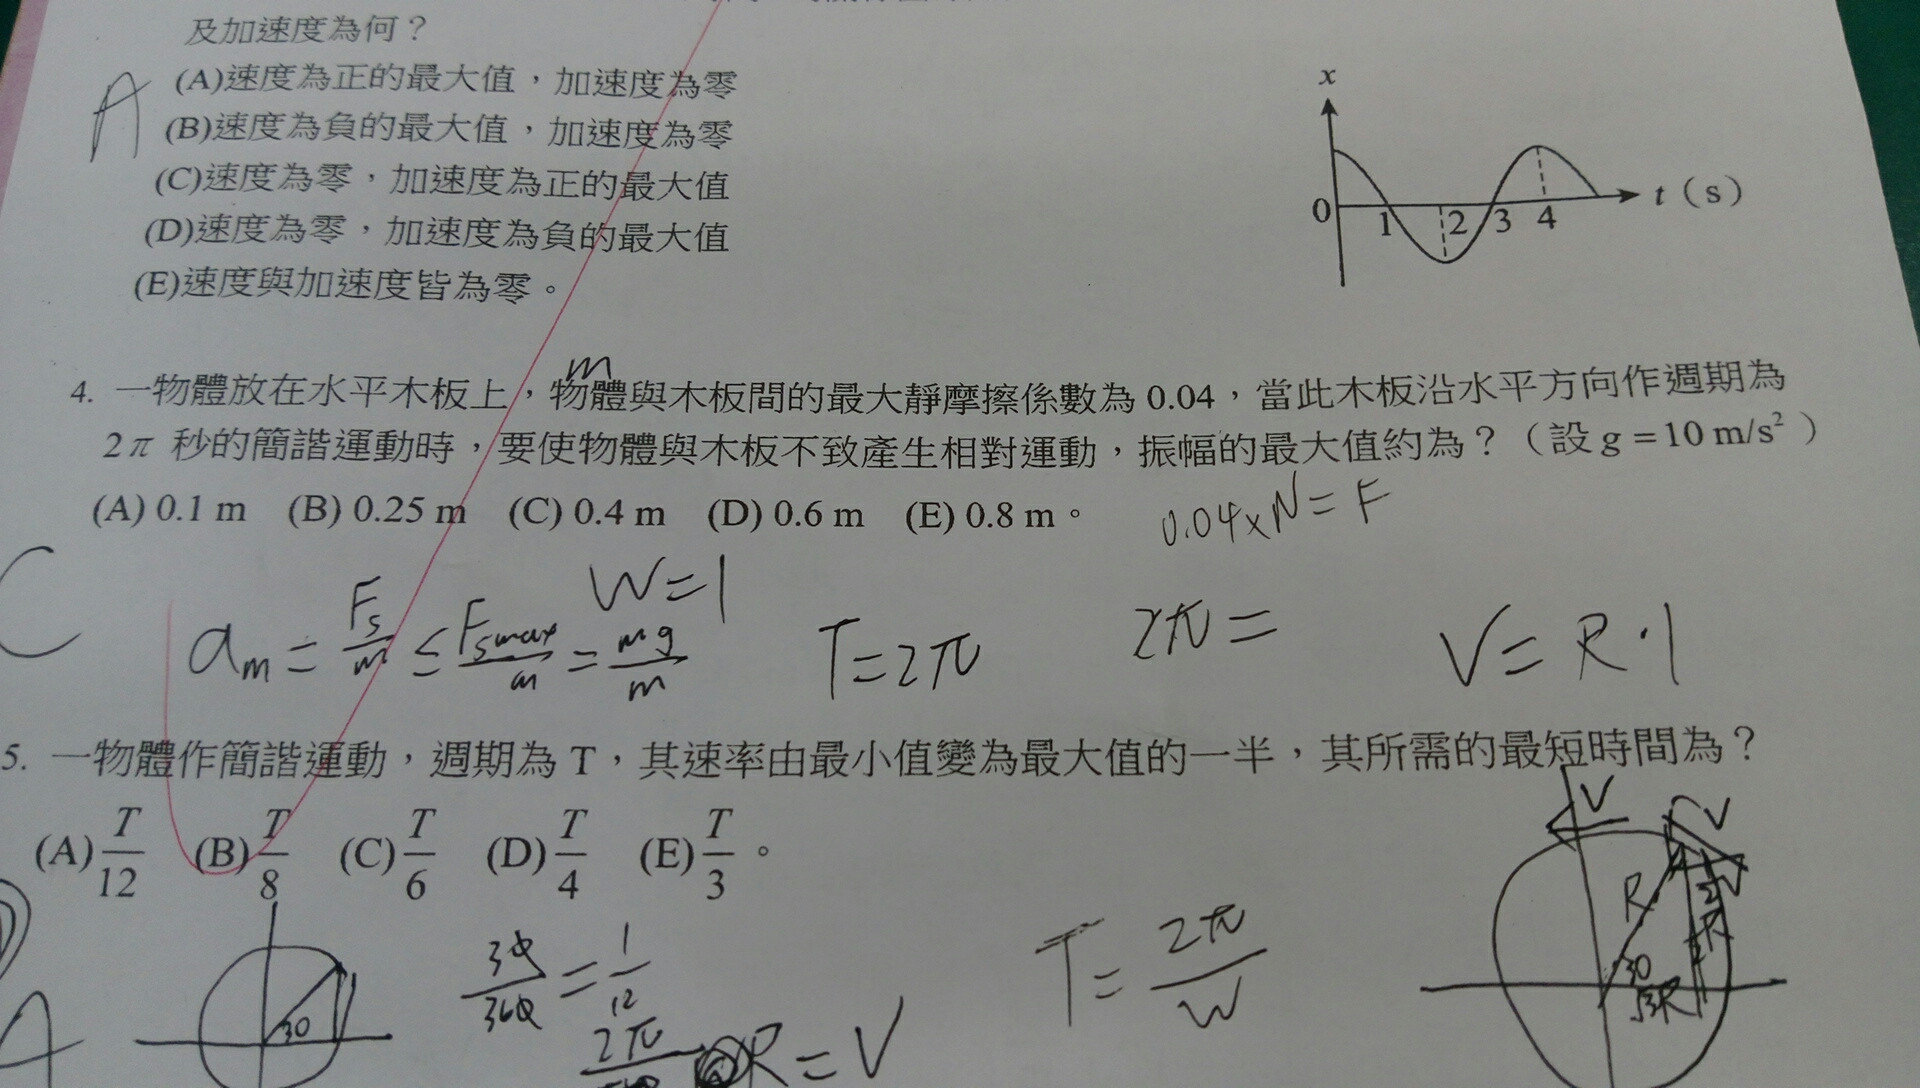 及加速度為何？
A
(A)速度為正的最大值，加速度為零
(B)速度為負的最大值，加速度為零
(C)速度為零，加速度為正的最大值
(D)速度為零，加速度為負的最大值
(E)速度與加速度皆為零。
x
0 1 2 3 4 t（s）
m
4. 一物體放在水平木板上，物體與木板間的最大靜摩擦係數為 0.04，當此木板沿水平方向作週期為
2π 秒的簡諧運動時，要使物體與木板不致產生相對運動，振幅的最大值約為？（設 g =10 m/s²）
(A) 0.1 m (B) 0.25 m (C) 0.4 m (D) 0.6 m (E) 0.8 m。
0.04×N=F
C
W=1
am = Fs/m ≤ Fsmax/m = mg/m
T=2π
2π=
V=R·1
5. 一物體作簡諧運動，週期為 T，其速率由最小值變為最大值的一半，其所需的最短時間為？
(A) T/12 (B) T/8 (C) T/6 (D) T/4 (E) T/3。
A
30
30/360 = 1/12
2π
R=V
T= 2π/W
V
V
R
30